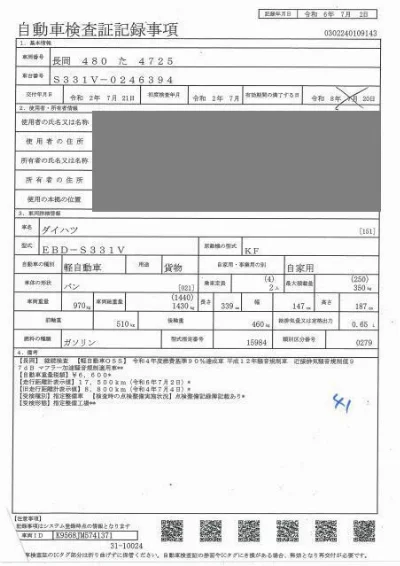 記録年月日 令和 6年 7月 2日
自動車検査証記録事項
0302240109143
1. 基本情報
車両番号 長岡 480 た 4725
車台番号 S331V-0246394
交付年月日 令和 2年 7月 21日 初度検査年月 令和 2年 7月 有効期間の満了する日 令和 8年 7月 20日
2. 使用者・所有者情報
使用者の氏名又は名称
使用者の住所
所有者の氏名又は名称
所有者の住所
使用の本拠の位置
3. 車両詳細情報
車名 ダイハツ [151]
型式 EBD-S331V 原動機の型式 KF
自動車の種別 軽自動車 用途 貨物 自家用・事業用の別 自家用
車体の形状 バン [021] 乗車定員 (4) 2人 最大積載量 (250) 350kg
車両重量 970kg 車両総重量 (1440) 1430kg 長さ 339cm 幅 147cm 高さ 187cm
前軸重 510kg 後軸重 460kg 総排気量又は定格出力 0.65L
燃料の種類 ガソリン 型式指定番号 15984 類別区分番号 0279
4. 備考
[長岡] 継続検査 [軽自動車OSS] 令和4年度燃費基準90%達成車 平成12年騒音規制車 近接排気騒音規制値9
7dB マフラー加速騒音規制適用車**
[自動車重量税額] ¥6,600*
[走行距離計表示値] 17,500km (令和6年7月2日)*
[旧走行距離計表示値] 8,800km (令和4年7月4日)*
[受検種別] 指定整備車 [検査時の点検整備実施状況] 点検整備記録簿記載あり*
[受検形態] 指定整備工場**
41
[注意事項]
記録事項はシステム登録時点の情報となります
車両ID K9568JM574137
31-10024
車検証のICタグ部分は折り曲げずに保管ください。自動車検査証の券面やICタグにき損がある場合、無効となり再交付が必要です。